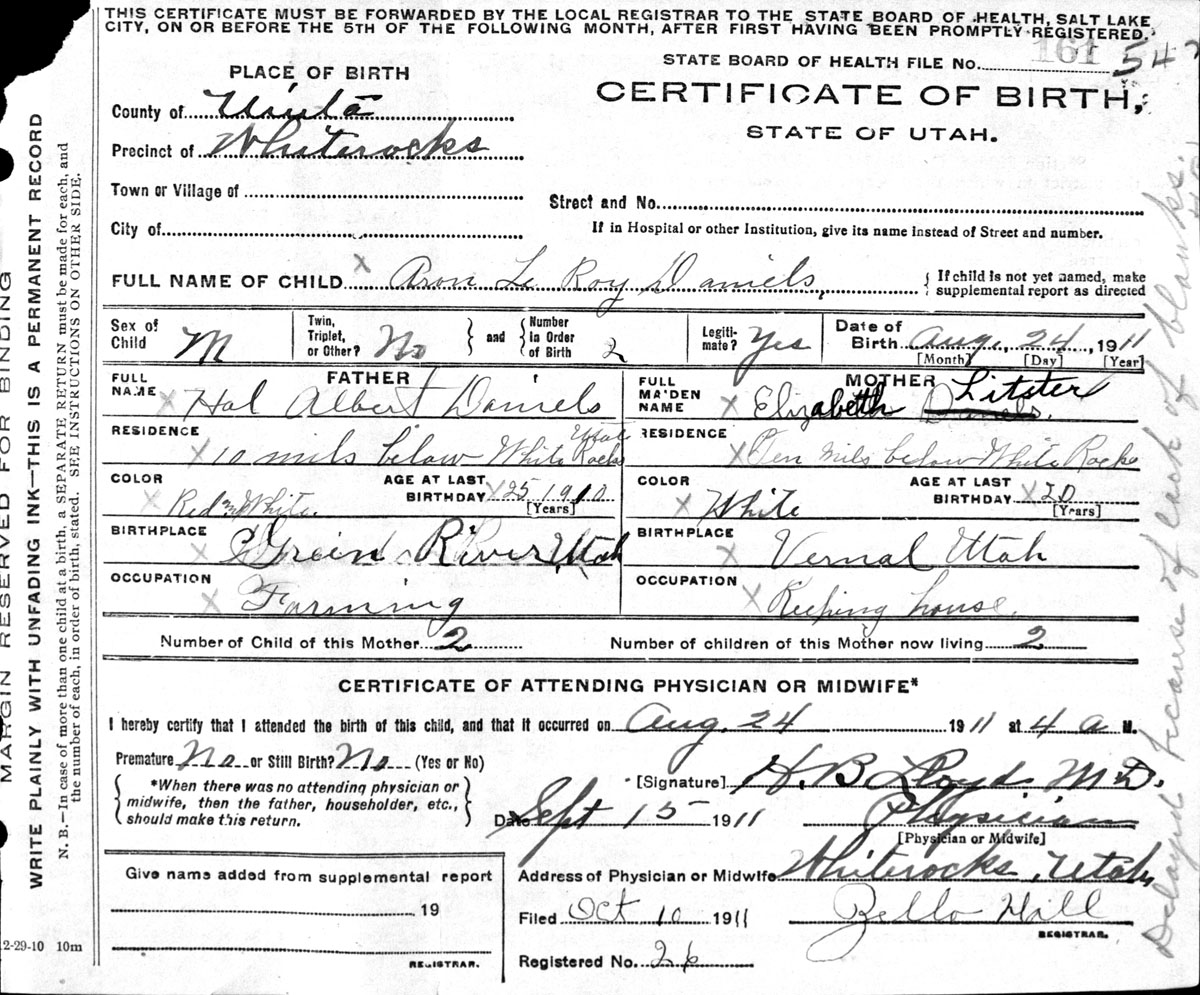 THIS CERTIFICATE MUST BE FORWARDED BY THE LOCAL REGISTRAR TO THE STATE BOARD OF HEALTH, SALT LAKE
CITY, ON OR BEFORE THE 5TH OF THE FOLLOWING MONTH, AFTER FIRST HAVING BEEN PROMPTLY REGISTERED.
STATE BOARD OF HEALTH FILE No. 161 542
PLACE OF BIRTH
CERTIFICATE OF BIRTH,
STATE OF UTAH.
County of Uinta
Precinct of Whiterocks
Town or Village of
Street and No.
City of
If in Hospital or other Institution, give its name instead of Street and number.
FULL NAME OF CHILD X Aron Le Roy Daniels, { If child is not yet named, make supplemental report as directed
Sex of Child M Twin, Triplet, or Other? No } and { Number in Order of Birth 2 Legitimate? Yes Date of Birth Aug. 24, 1911
[Month] [Day] [Year]
FATHER MOTHER
FULL NAME X Hal Albert Daniels FULL MAIDEN NAME X Elizabeth Daniels. Litster
RESIDENCE X 10 mils below White Rocks Utah RESIDENCE X Ten mils below White Rocks
COLOR X Red and White. AGE AT LAST BIRTHDAY X 25 1910 [Years] COLOR X White AGE AT LAST BIRTHDAY X 20 [Years]
BIRTHPLACE X Grein River Utah BIRTHPLACE X Vernal Utah
OCCUPATION X Farming OCCUPATION X Keeping house.
Number of Child of this Mother 2 Number of children of this Mother now living 2
CERTIFICATE OF ATTENDING PHYSICIAN OR MIDWIFE*
I hereby certify that I attended the birth of this child, and that it occurred on Aug. 24 1911 at 4 a M.
Premature No or Still Birth? No (Yes or No)
[Signature] H. B. Lloyd M D.
{ *When there was no attending physician or midwife, then the father, householder, etc., should make this return. }
Date Sept 15 1911 Physician
[Physician or Midwife]
Give name added from supplemental report
Address of Physician or Midwife Whiterocks, Utah,
19
Filed Oct 10 1911 Zello Hill
REGISTRAR.
REGISTRAR.
Registered No. 26
2-29-10 10m
MARGIN RESERVED FOR BINDING
WRITE PLAINLY WITH UNFADING INK—THIS IS A PERMANENT RECORD
N. B.—In case of more than one child at a birth, a SEPARATE RETURN must be made for each, and
the number of each, in order of birth, stated. SEE INSTRUCTIONS ON OTHER SIDE.
Delayed because of lack of blanks.